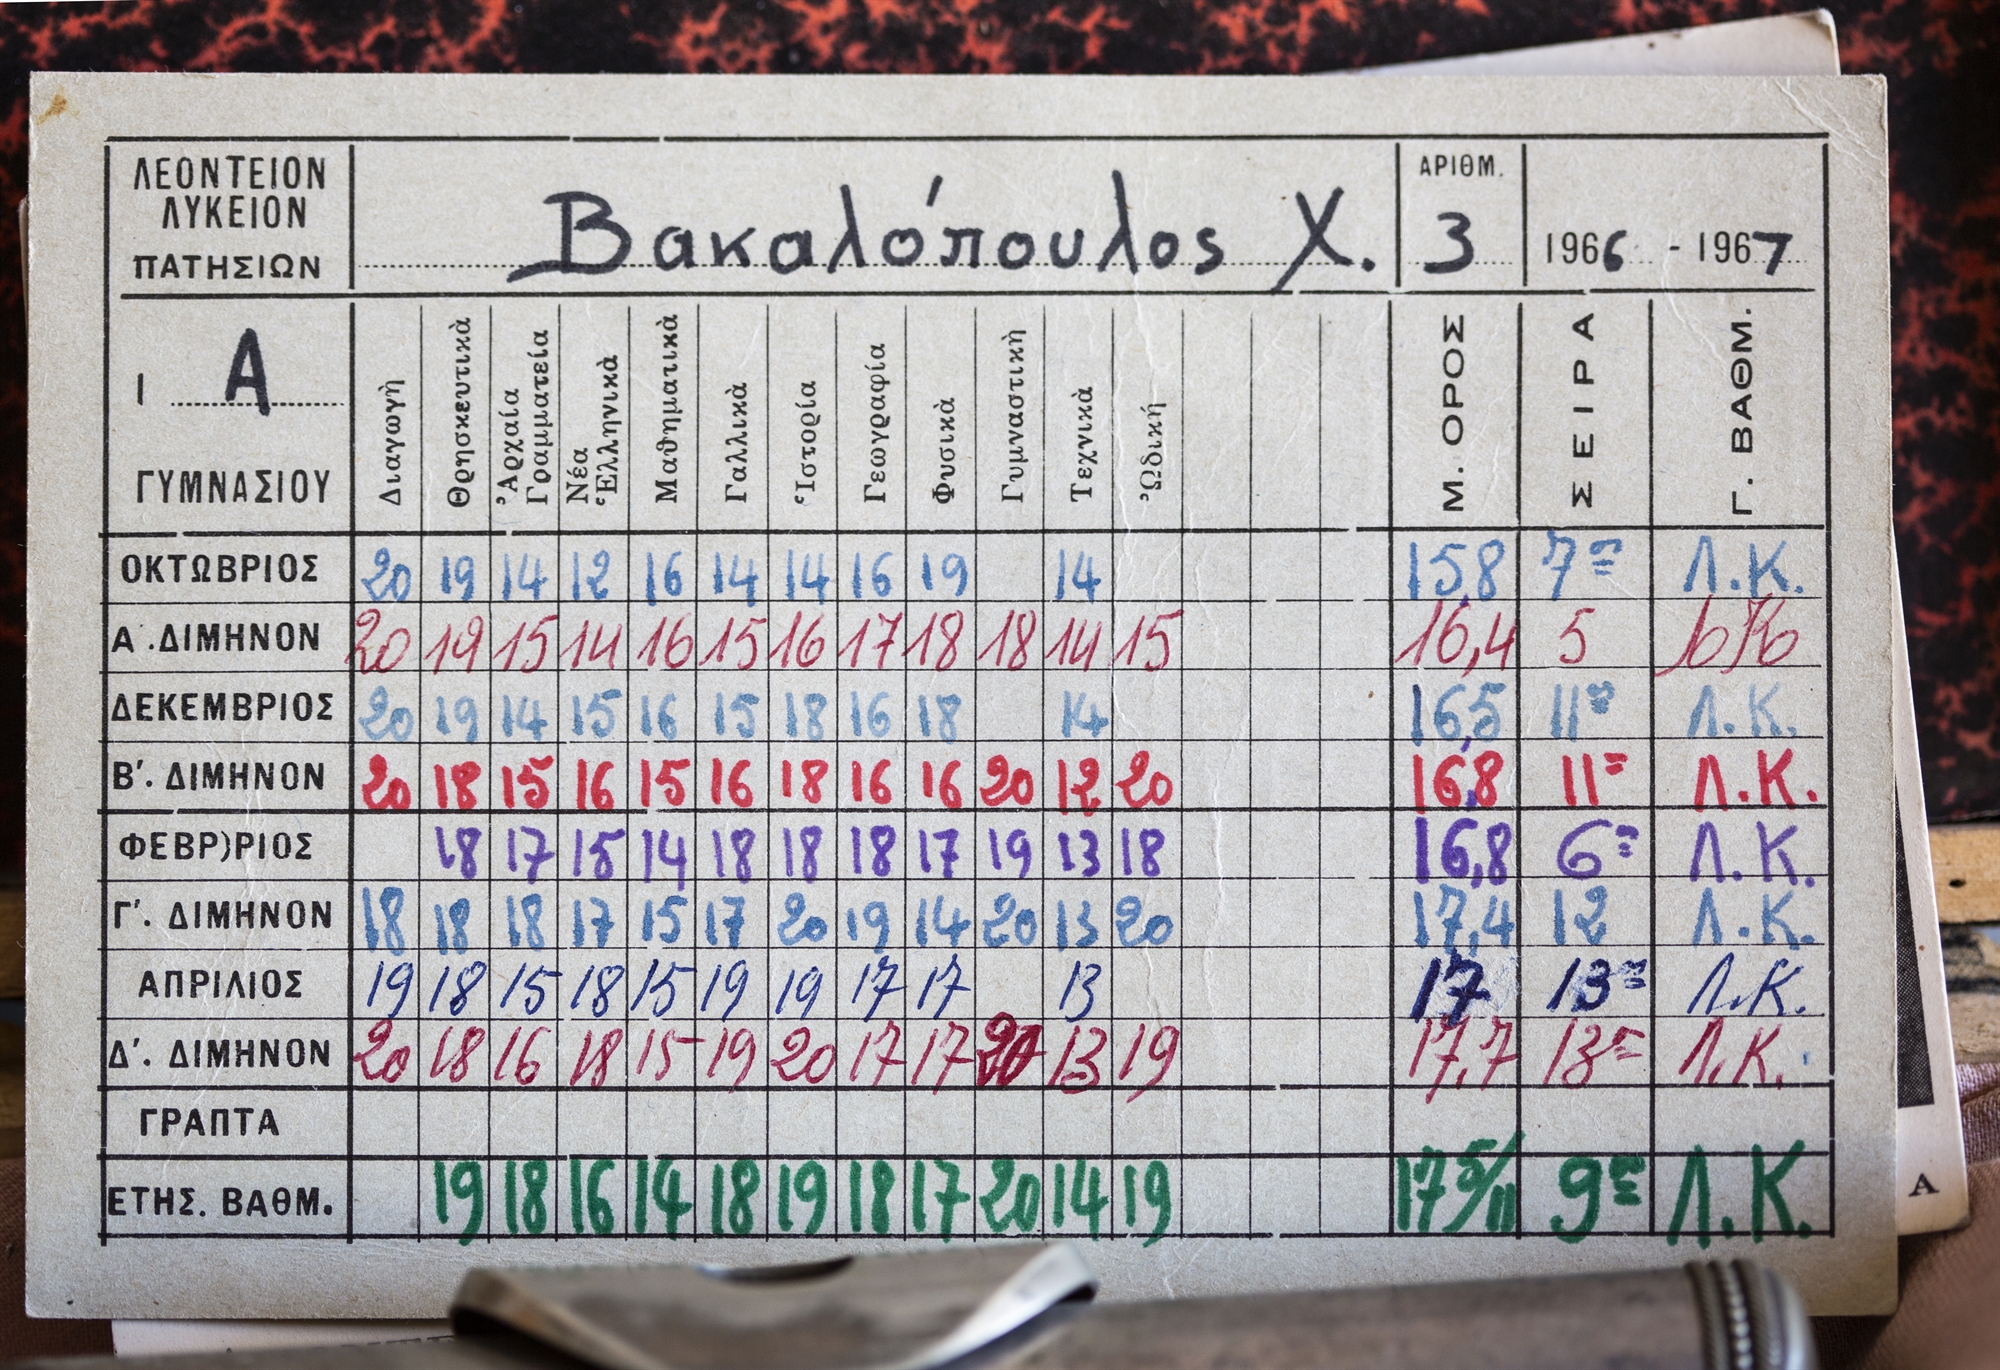 ΛΕΟΝΤΕΙΟΝ
ΛΥΚΕΙΟΝ
ΠΑΤΗΣΙΩΝ
Βακαλόπουλος Χ.
ΑΡΙΘΜ.
3
1966 - 1967
Ι Α
ΓΥΜΝΑΣΙΟΥ
Διαγωγὴ
Θρησκευτικὰ
Ἀρχαία Γραμματεία
Νέα Ἑλληνικὰ
Μαθηματικὰ
Γαλλικὰ
Ἱστορία
Γεωγραφία
Φυσικὰ
Γυμναστικὴ
Τεχνικὰ
Ὠδικὴ
Μ. ΟΡΟΣ
ΣΕΙΡΑ
Γ. ΒΑΘΜ.
ΟΚΤΩΒΡΙΟΣ 20 19 14 12 16 14 14 16 19 14 15,8 7η Λ.Κ.
Α΄. ΔΙΜΗΝΟΝ 20 19 15 14 16 15 16 17 18 18 14 15 16,4 5
ΔΕΚΕΜΒΡΙΟΣ 20 19 14 15 16 15 18 16 18 14 16,5 11η Λ.Κ.
Β΄. ΔΙΜΗΝΟΝ 20 18 15 16 15 16 18 16 16 20 12 20 16,8 11η Λ.Κ.
ΦΕΒΡ)ΡΙΟΣ 18 17 15 14 18 18 18 17 19 13 18 16,8 6η Λ.Κ.
Γ΄. ΔΙΜΗΝΟΝ 18 18 18 17 15 17 20 19 14 20 13 20 17,4 12 Λ.Κ.
ΑΠΡΙΛΙΟΣ 19 18 15 18 15 19 19 17 17 13 17 13η Λ.Κ.
Δ΄. ΔΙΜΗΝΟΝ 20 18 16 18 15 19 20 17 17 20 13 19 17,7 13η Λ.Κ.
ΓΡΑΠΤΑ
ΕΤΗΣ. ΒΑΘΜ. 19 18 16 14 18 19 18 17 20 14 19 17 5/11 9η Λ.Κ.
Α